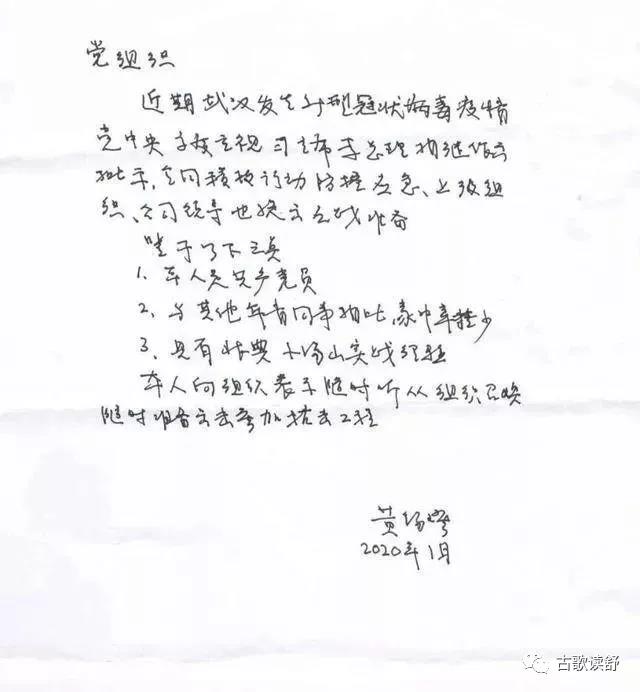 党组织
近期武汉发生新型冠状病毒疫情
党中央高度重视习主席李总理相继作出
批示,全国积极行动防控应急、上级组
织、公司领导也提出应战准备
鉴于以下三点
1. 本人是共产党员
2. 与其他年青同事相比,家中牵挂少
3. 具有非典小汤山实战经验
本人向组织表示随时听从组织召唤
随时准备出击参加抗击工程
黄锡璆
2020年1月
古歌读舒